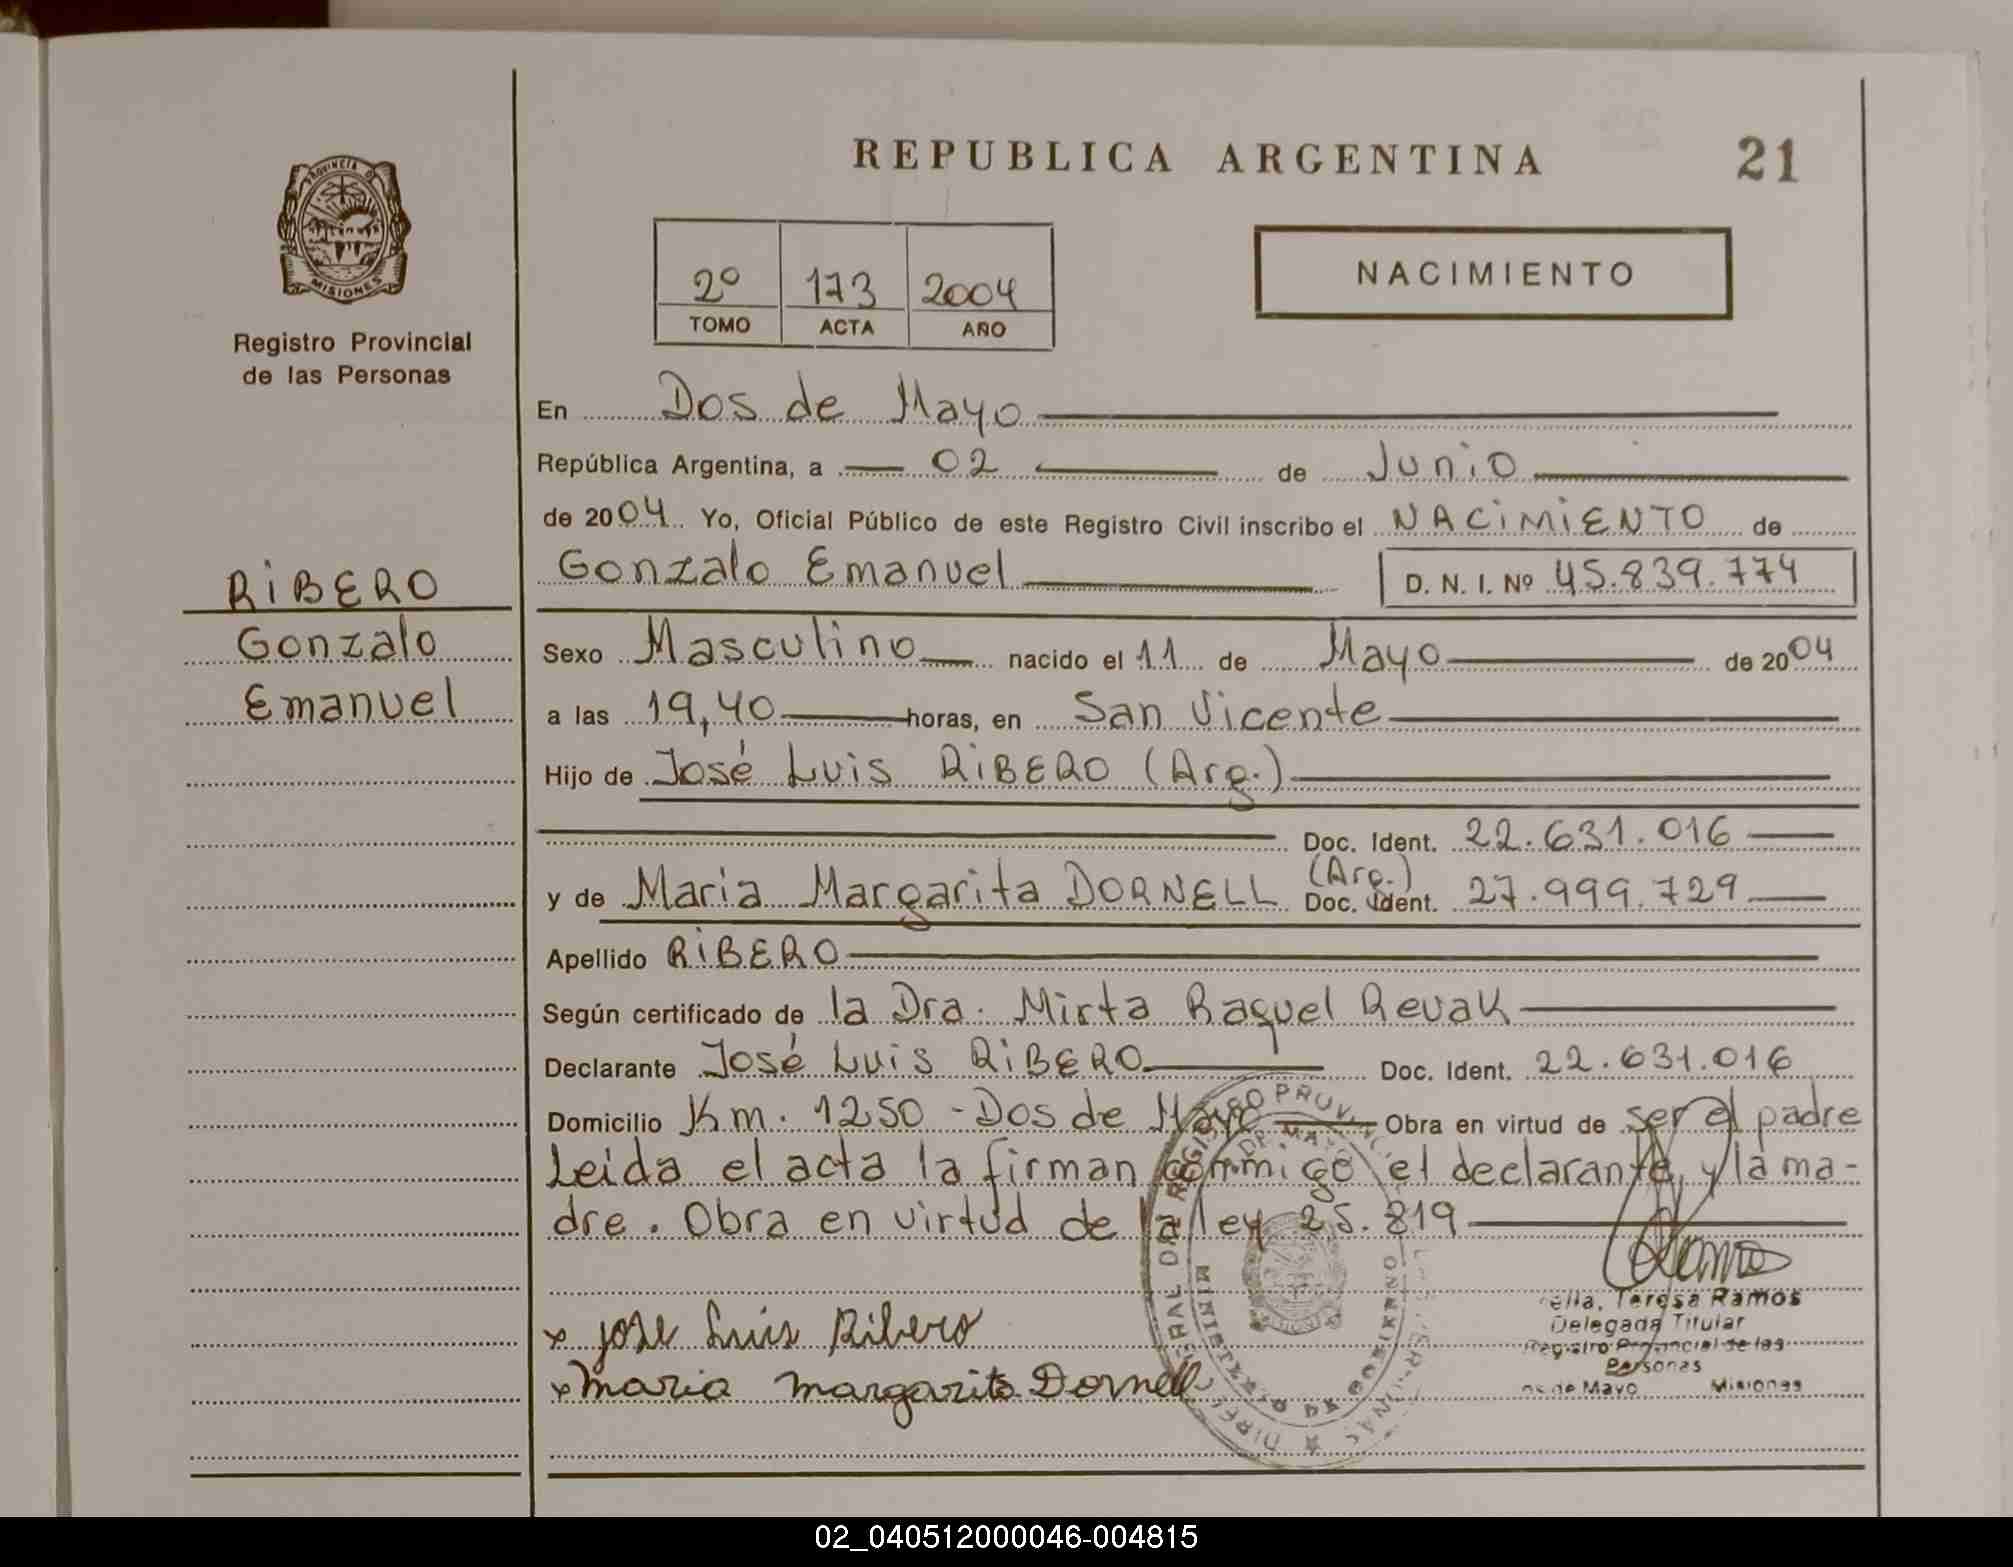 REPUBLICA ARGENTINA
21
PROVINCIA DE
MISIONES
Registro Provincial
de las Personas
2º 173 2004
TOMO ACTA AÑO
NACIMIENTO
En Dos de Mayo
República Argentina, a 02 de Junio
de 2004 Yo, Oficial Público de este Registro Civil inscribo el NACIMIENTO de
Gonzalo Emanuel D. N. I. Nº 45.839.774
RIBERO
Gonzalo
Emanuel
Sexo Masculino nacido el 11 de Mayo de 2004
a las 19,40 horas, en San Vicente
Hijo de José Luis RIBERO (Arg.)
Doc. Ident. 22.631.016
y de Maria Margarita DORNELL (Arg.) Doc. Ident. 27.999.729
Apellido RIBERO
Según certificado de la Dra. Mirta Raquel Revak
Declarante José Luis RIBERO Doc. Ident. 22.631.016
Domicilio Km. 1250 - Dos de Mayo Obra en virtud de ser el padre
Leida el acta la firman commigo el declarante y la ma-
dre. Obra en virtud de la ley 25.819
x jose Luis Ribero
x maria margarita Dornell
Teresa Ramos
Delegada Titular
Registro Provincial de las
Personas
de Mayo Misiones
02_040512000046-004815